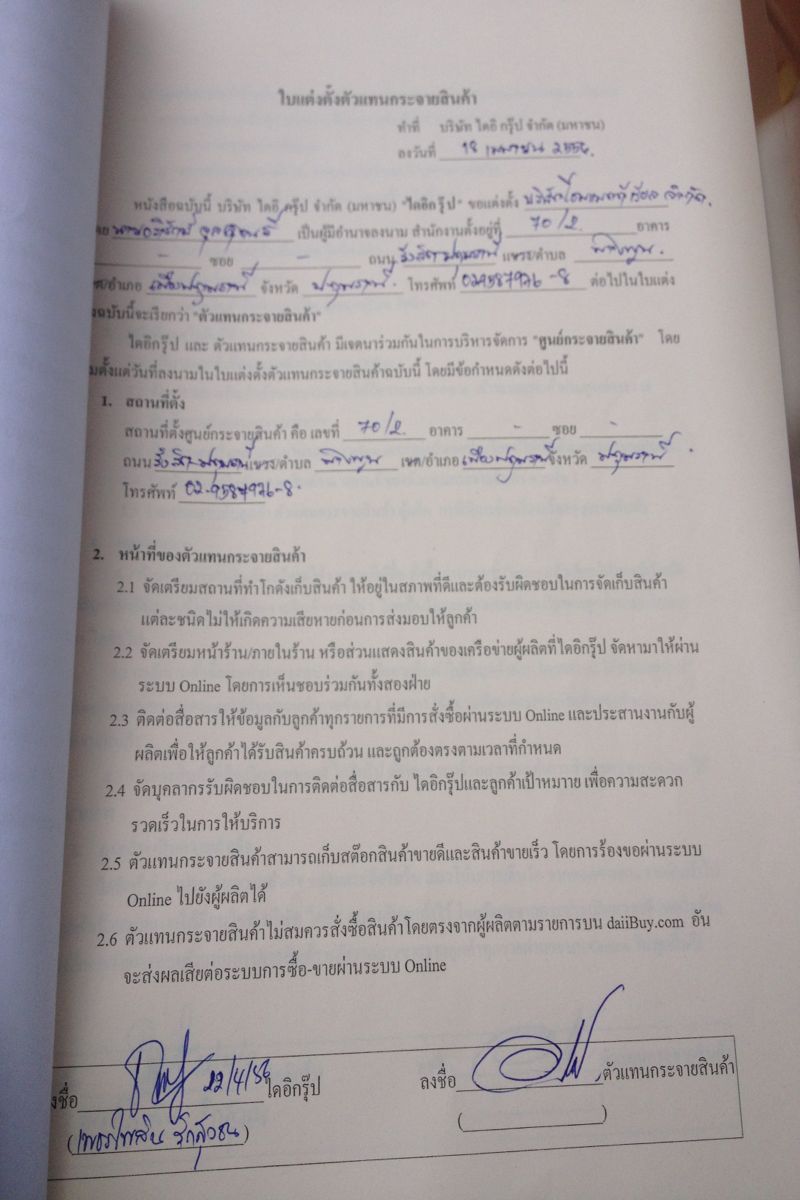 ใบแต่งตั้งตัวแทนกระจายสินค้า
ทำที่ บริษัท ไดอิ กรุ๊ป จำกัด (มหาชน)
ลงวันที่ 18 เมษายน 2556.
หนังสือฉบับนี้ บริษัท ไดอิ กรุ๊ป จำกัด (มหาชน) "ไดอิกรุ๊ป" ขอแต่งตั้ง บริษัท จำกัด.
เป็นผู้มีอำนาจลงนาม สำนักงานตั้งอยู่ที่ 70/2 อาคาร
- ซอย - ถนน รังสิต-ปทุมธานี แขวง/ตำบล บ้านกลาง.
/อำเภอ เมืองปทุมธานี จังหวัด ปทุมธานี. โทรศัพท์ 029587926-8 ต่อไปในใบแต่ง
ฉบับนี้จะเรียกว่า "ตัวแทนกระจายสินค้า"
ไดอิกรุ๊ป และ ตัวแทนกระจายสินค้า มีเจตนาร่วมกันในการบริหารจัดการ "ศูนย์กระจายสินค้า" โดย
มตั้งแต่วันที่ลงนามในใบแต่งตั้งตัวแทนกระจายสินค้าฉบับนี้ โดยมีข้อกำหนดดังต่อไปนี้
1. สถานที่ตั้ง
สถานที่ตั้งศูนย์กระจายสินค้า คือ เลขที่ 70/2. อาคาร - ซอย -
ถนน รังสิต-ปทุมธานี แขวง/ตำบล บ้านกลาง เขต/อำเภอ เมืองปทุมธานี จังหวัด ปทุมธานี.
โทรศัพท์ 02-9587926-8.
2. หน้าที่ของตัวแทนกระจายสินค้า
2.1 จัดเตรียมสถานที่ทำโกดังเก็บสินค้า ให้อยู่ในสภาพที่ดีและต้องรับผิดชอบในการจัดเก็บสินค้า
แต่ละชนิดไม่ให้เกิดความเสียหายก่อนการส่งมอบให้ลูกค้า
2.2 จัดเตรียมหน้าร้าน/ภายในร้าน หรือส่วนแสดงสินค้าของเครือข่ายผู้ผลิตที่ไดอิกรุ๊ป จัดหามาให้ผ่าน
ระบบ Online โดยการเห็นชอบร่วมกันทั้งสองฝ่าย
2.3 ติดต่อสื่อสารให้ข้อมูลกับลูกค้าทุกรายการที่มีการสั่งซื้อผ่านระบบ Online และประสานงานกับผู้
ผลิตเพื่อให้ลูกค้าได้รับสินค้าครบถ้วน และถูกต้องตรงตามเวลาที่กำหนด
2.4 จัดบุคลากรรับผิดชอบในการติดต่อสื่อสารกับ ไดอิกรุ๊ปและลูกค้าเป้าหมาาย เพื่อความสะดวก
รวดเร็วในการให้บริการ
2.5 ตัวแทนกระจายสินค้าสามารถเก็บสต๊อกสินค้าขายดีและสินค้าขายเร็ว โดยการร้องขอผ่านระบบ
Online ไปยังผู้ผลิตได้
2.6 ตัวแทนกระจายสินค้าไม่สมควรสั่งซื้อสินค้าโดยตรงจากผู้ผลิตตามรายการบน daiiBuy.com อัน
จะส่งผลเสียต่อระบบการซื้อ-ขายผ่านระบบ Online
งชื่อ 22/4/56 ไดอิกรุ๊ป ลงชื่อ ตัวแทนกระจายสินค้า
( ) ( )